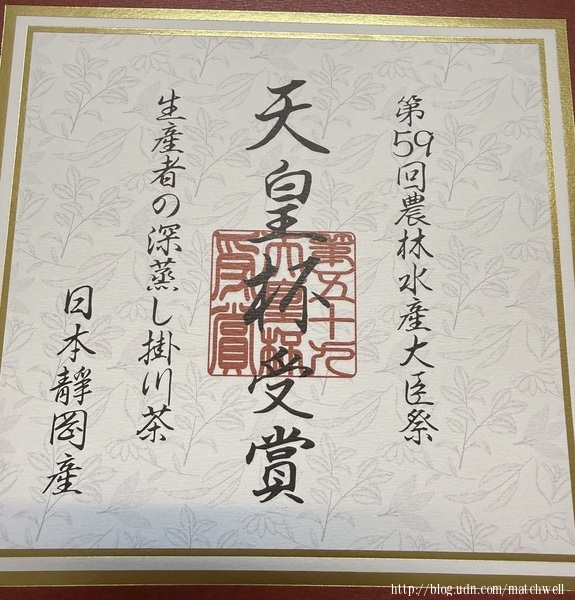 第59回農林水産大臣祭
天皇杯受賞
第五十九
天皇杯
受賞
生産者の深蒸し掛川茶
日本靜岡産
http://blog.udn.com/matchwell